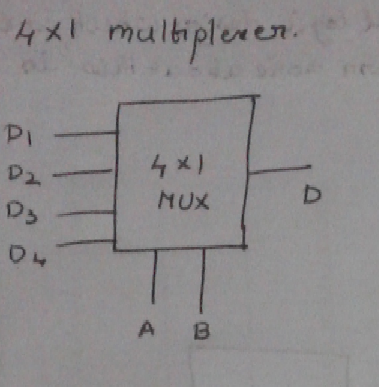 4×1 multiplexer.
D1
D2
D3
D4
4×1
MUX
D
A B